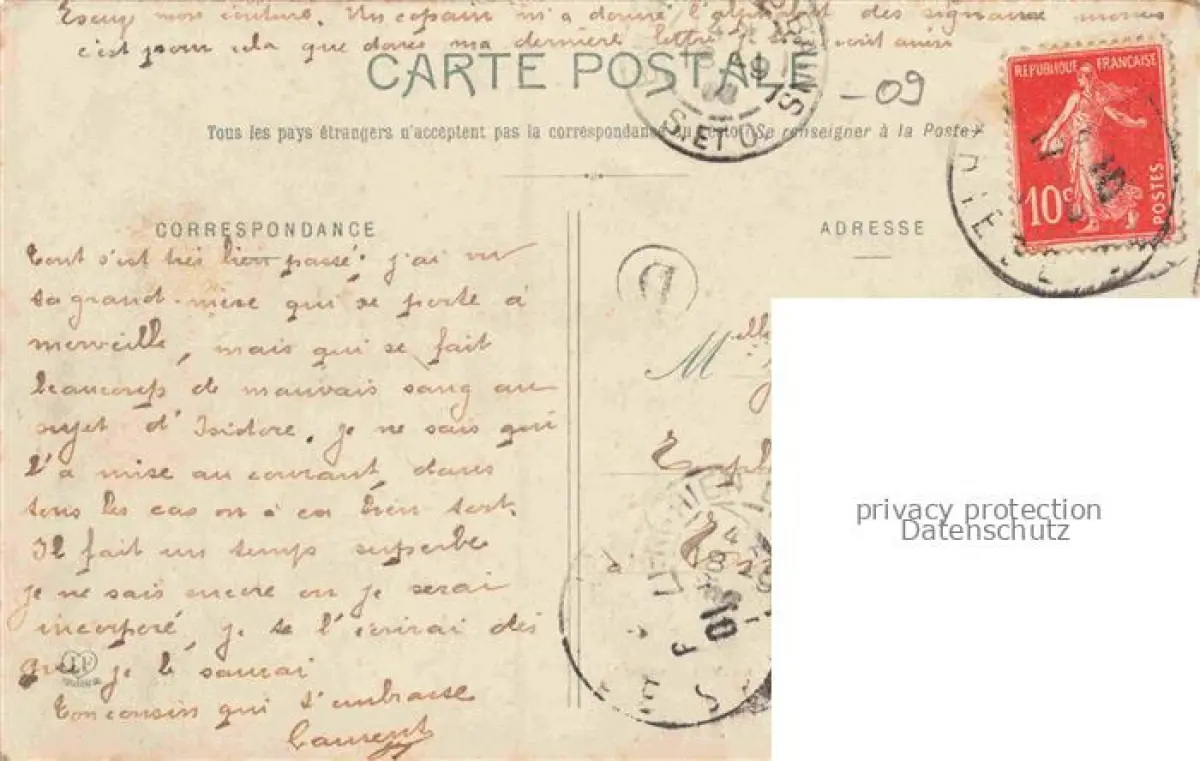 mon écriture. Un copain m'a donné l'alphabet des signaux morses
c'est pour cela que dans ma dernière lettre je écrit ainsi
CARTE POSTALE
-09
Tous les pays étrangers n'acceptent pas la correspondance au recto (Se renseigner à la Poste)
REPUBLIQUE FRANÇAISE
10c
POSTES
S. ET O.
CORRESPONDANCE
ADRESSE
Tout s'est très bien passé. j'ai vu
ta grand-mère qui se porte à
merveille, mais qui se fait
beaucoup de mauvais sang au
sujet d'Isidore. je ne sais qui
l'a mise au courant, dans
tous les cas on a eu bien tort.
Il fait un temps superbe
je ne sais encore où je serai
incorporé, je te l'écrirai dès
que je le saurai
Ton cousin qui t'embrasse
Laurent
D
Melle
à
10
privacy protection
Datenschutz